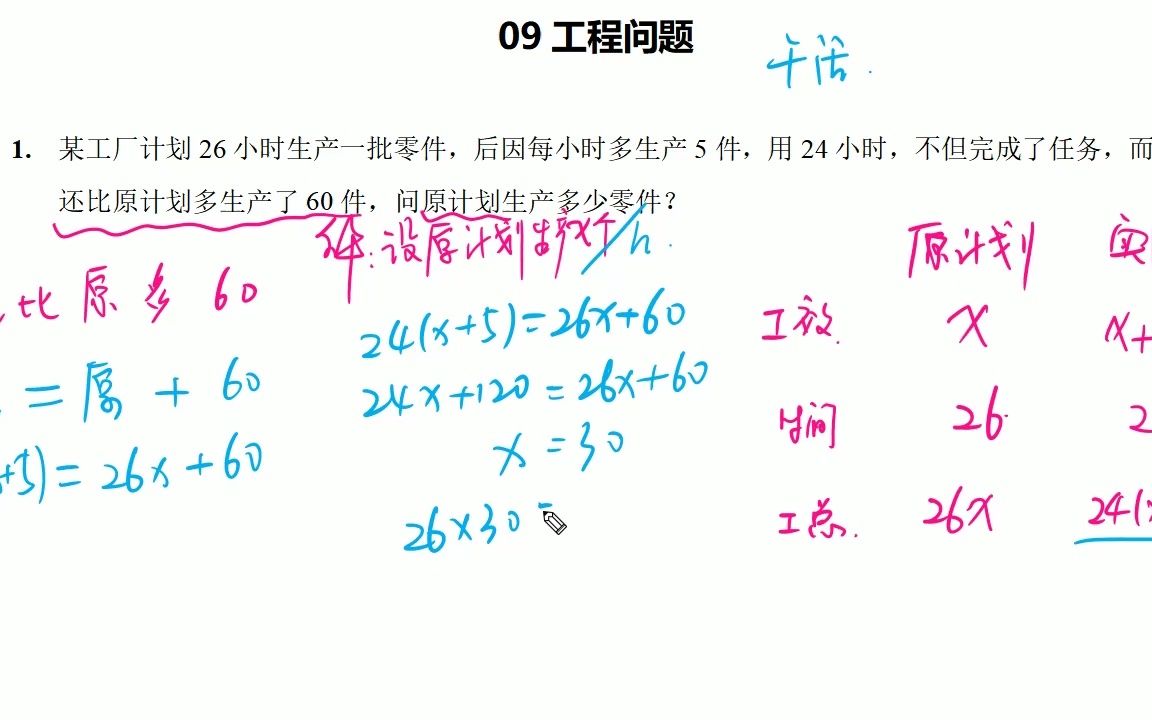 09 工程问题
干活.
1. 某工厂计划 26 小时生产一批零件，后因每小时多生产 5 件，用 24 小时，不但完成了任务，而
还比原计划多生产了 60 件，问原计划生产多少零件？
解:设原计划生产x个/h.
比原多 60
= 原 + 60
+5) = 26x+60
24(x+5)=26x+60
24x+120=26x+60
x=30
26×30=
原计划 实
工效. x x+
时间 26 2
工总. 26x 24(x